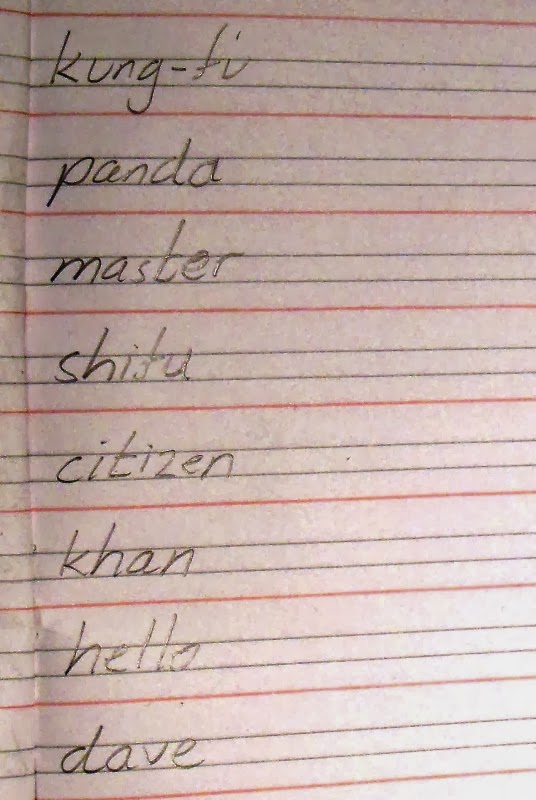 kung-fu
panda
master
shifu
citizen
khan
hello
dave